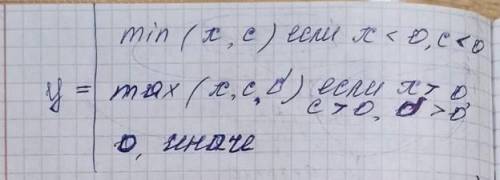 min (x, c) если x < 0, c < 0
y = max (x, c, d) если x > 0
c > 0, d > 0
0, иначе